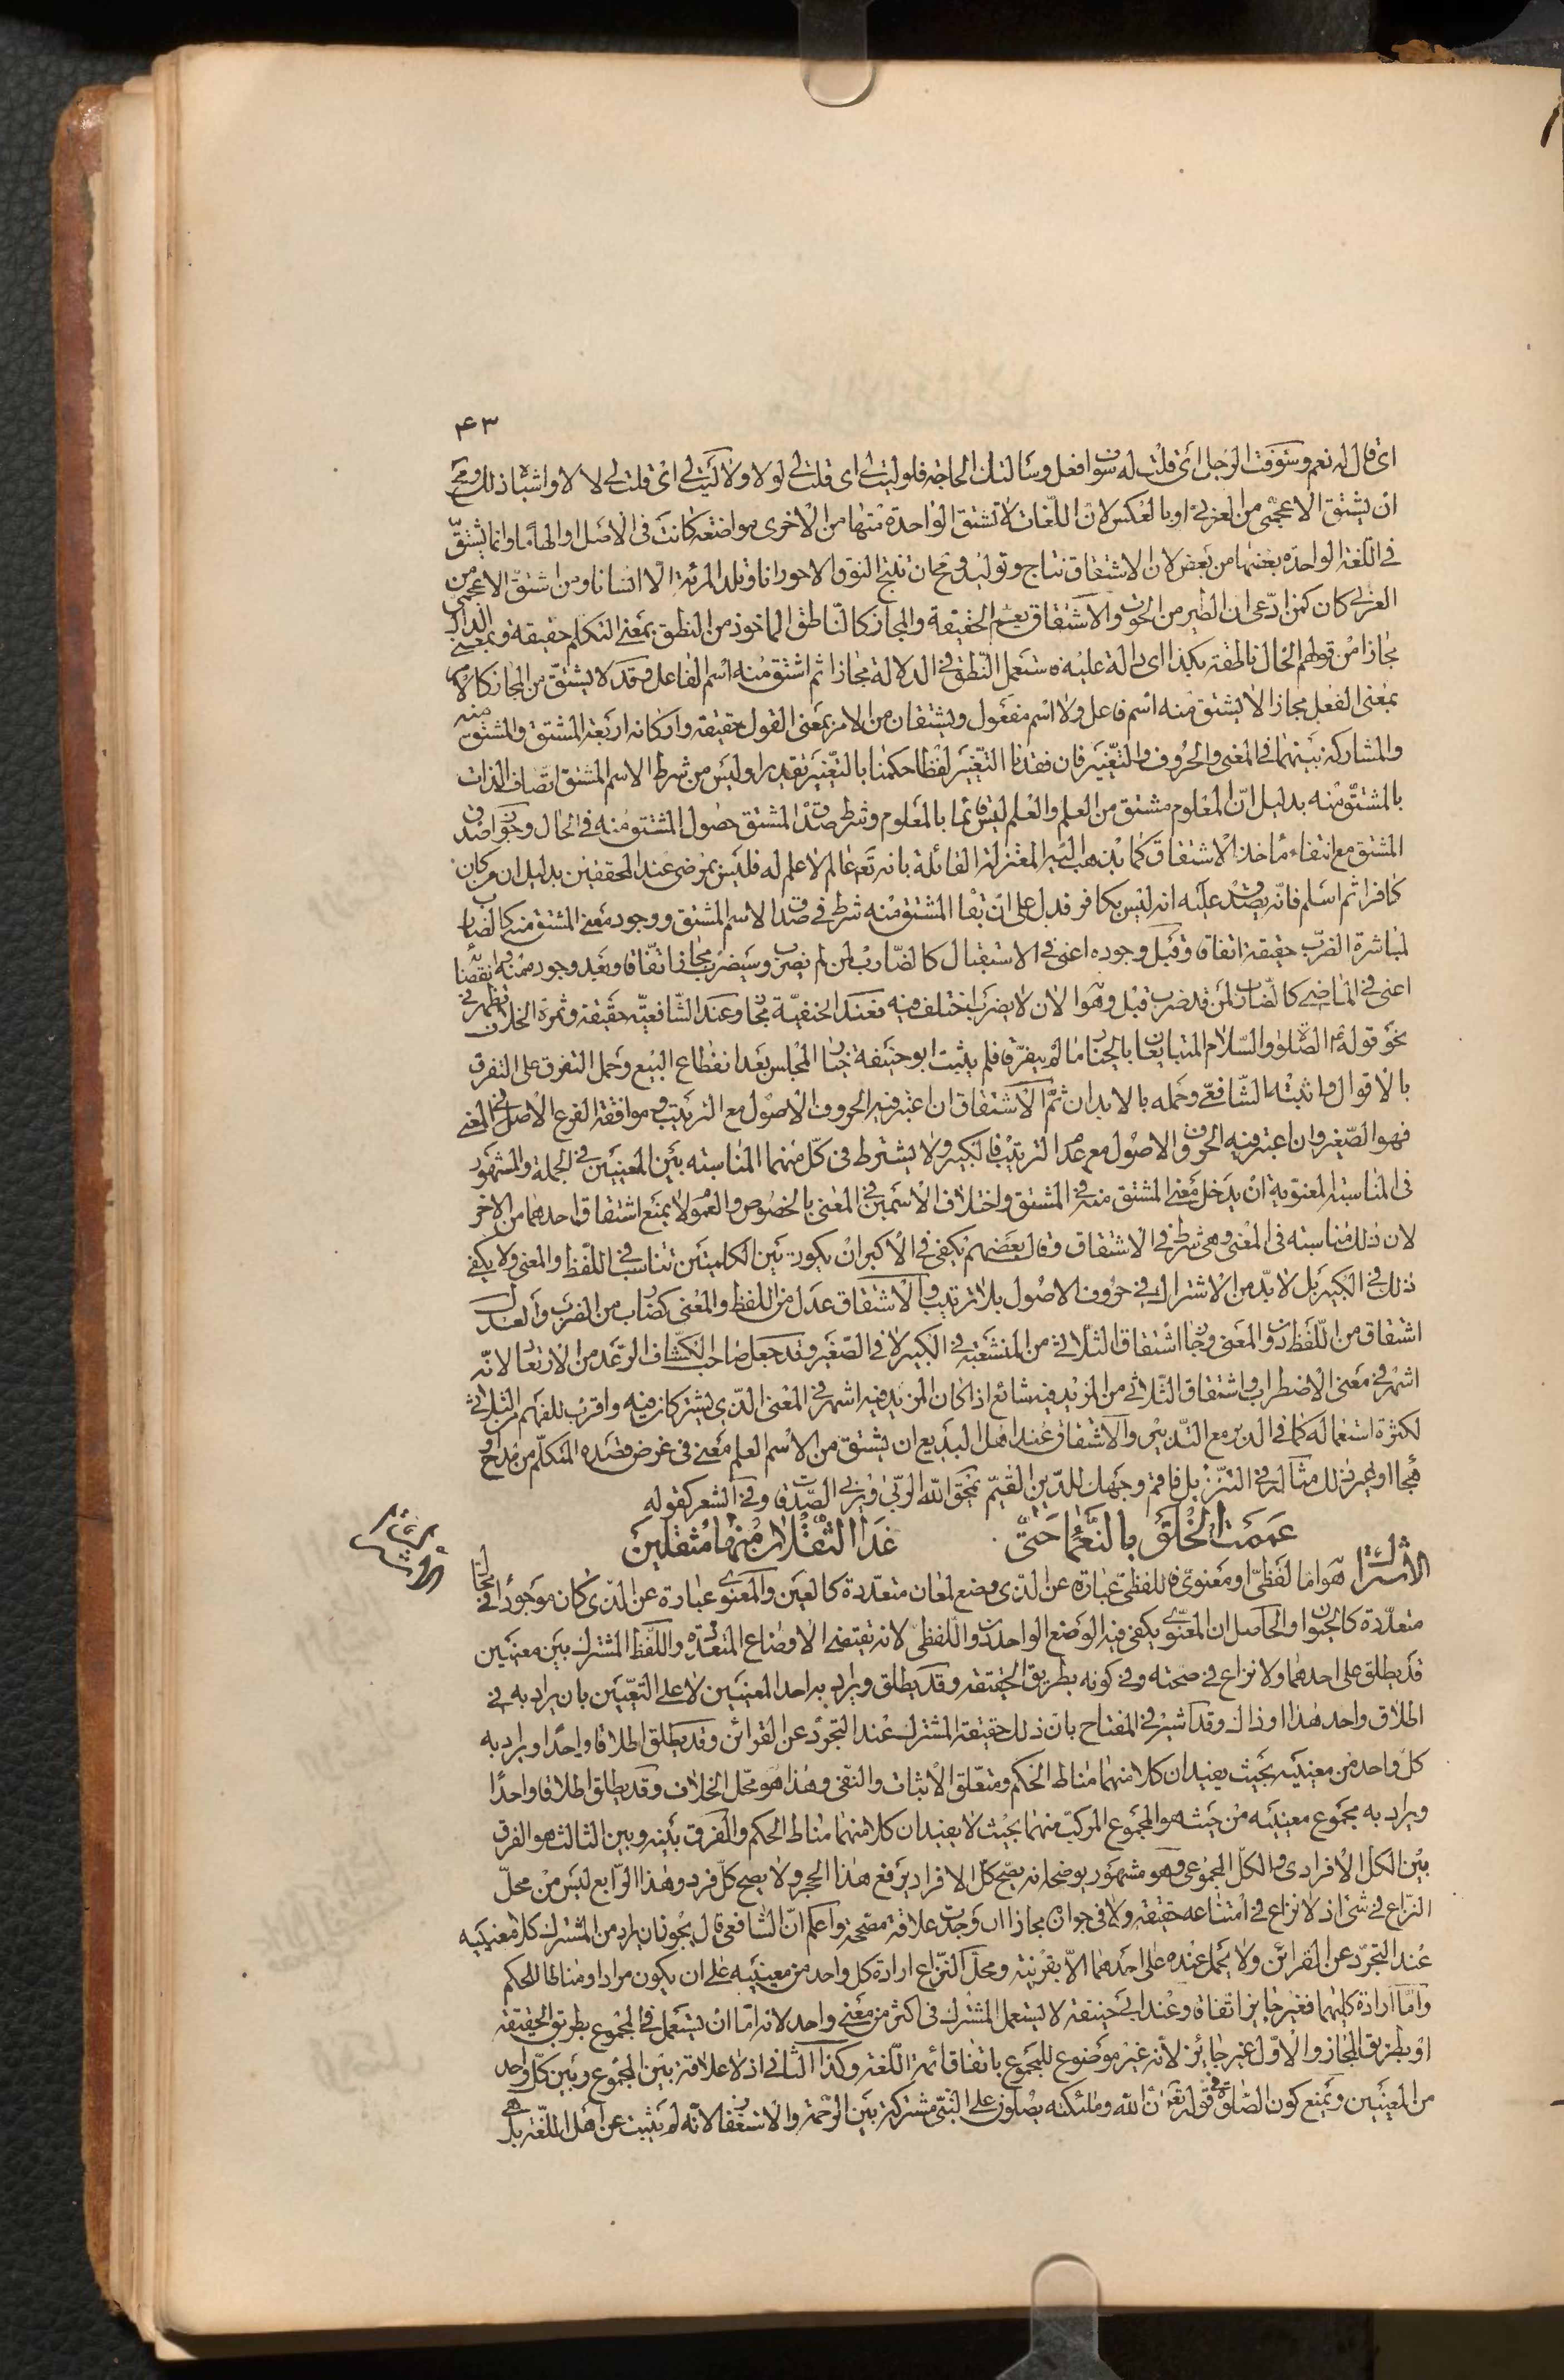 ۴۳
اى قال له نعم وسوفت الرجل أى قلت له سوف افعل وسألتك الحاجة فلوليت لى اى قلت لى لولا ولا ليت لى اى قلت لى لا لا واشباه ذلك ومح
ان يشتق الاعجمى من العربى او بالعكس لان اللغات لا تشتق الواحدة منها من الاخرى مواضعة كانت فى الاصل او الهاما وانما يشتق
فى اللغة الواحدة بعضها من بعض لان الاشتقاق نتاج وتوليد ومح ان تنتج النوق الا حورانا وتلد المرئة الا انسانا ومن اشتق الاعجمى من
العربى كان كمن ادعى ان الطير من الحوت والاشتقاق يعم الحقيقة والمجاز كالناطق الماخوذ من النطق بمعنى التكلم حقيقة وبمعنى الدال
مجازا من قولهم الحال ناطقة بكذا اى دالة عليه فاستعمل النطق فى الدلالة مجازا ثم اشتق منه اسم الفاعل وقد لا يشتق من المجاز كالامر
بمعنى الفعل مجازا لا يشتق منه اسم فاعل ولا اسم مفعول ويشتقان من الامر بمعنى القول حقيقة واركانه اربعة المشتق والمشتق منه
والمشاركة بينهما فى المعنى والحروف والتغيير فان فقدنا التغيير لفظا حكمنا بالتغيير تقديرا وليس من شرط الاسم المشتق اتصاف الذات
بالمشتق منه بدليل ان المعلوم مشتق من العلم والعلم ليس قائما بالمعلوم وشرط صدق المشتق حصول المشتق منه فى الحال وجواز صدق
المشتق مع انتفاء مأخذ الاشتقاق كما يذهب اليه المعتزلة القائلة بانه تعم عالم لا علم له فليس بمرضى عند المحققين بدليل ان من كان
كافرا ثم اسلم فانه يصدق عليه انه ليس بكافر فدل على ان بقا المشتق منه شرط فى صدق الاسم المشتق ووجود معنى المشتق منه كالضارب
لمباشرة الضرب حقيقة اتفاقا وقبل وجوده اعنى فى الاستقبال كالضارب لمن لم يضرب وسيضرب مجاز اتفاقا وبعد وجوده منه وانقضا
اعنى فى الماضى كالضارب لمن قد ضرب قبل وهو الان لا يضرب اختلف فيه فعند الحنفية مجاز وعند الشافعية حقيقة وثمرة الخلاف تظهر فى
نحو قوله الصلوة والسلام المتبايعان بالخيار ما لم يتفرقا فلم يثبت ابو حنيفة خيار المجلس بعد انقطاع البيع وحمل التفرق على التفرق
بالاقوال واثبته الشافعى وحمله بالابدان ثم الاشتقاق ان اعتبر فيه الحروف الاصول مع الترتيب وموافقة الفرع الاصل فى المعنى
فهو الصغير وان اعتبر فيه الحروف الاصول مع عدم الترتيب فالكبير ولا يشترط فى كل منهما المناسبة بين المعنيين فى الجملة والمشهور
فى المناسبة المعنوية ان يدخل معنى المشتق منه فى المشتق واختلاف الاسمين فى المعنى بالخصوص والعموم لا يمنع اشتقاق احدهما من الاخر
لان ذلك مناسبة فى المعنى وهى شرط فى الاشتقاق وقال بعضهم يكفى فى الاكبر ان يكون بين الكلمتين تناسب فى اللفظ والمعنى ولا يكفى
ذلك فى الكبير بل لا بد من الاشتراك فى حروف الاصول بلا ترتيب والاشتقاق عدل من اللفظ والمعنى كضارب من الضرب والعدل
اشتقاق من اللفظ دون المعنى وجاز اشتقاق الثلاثى من المنشعبة فى الكبير لا فى الصغير وقد جعل صاحب الكشاف الرعد من الارتعاد لانه
اشهر فى معنى الاضطراب واشتقاق الثلاثى من المزيد فيه شائع اذا كان المزيد فيه اشهر فى المعنى الذى يشتركان فيه واقرب للفهم من الثلاثى
لكثرة استعماله كما فى الدبر مع التدبير والاشتقاق عند اهل البديع ان يشتق من الاسم العلم معنى فى غرض قصده المتكلم من مدح او
هجا او غير ذلك مثاله فى التنزيل فاقم وجهك للدين القيم يمحق الله الربى ويربى الصدقات وفى الشعر كقوله
عممت الخلق بالنعماء حتى غدا الثقلان منها مثقلين
الاشتراك هو اما لفظى او معنوى فاللفظى عبارة عن الذى وضع لمعان متعددة كالعين والمعنوى عبارة عن الذى كان موجودا فى محال
متعددة كالحيوان والحاصل ان المعنوى يكفى فيه الوضع الواحد دون اللفظى لانه يقتضى الاوضاع المتعددة واللفظ المشترك بين معنيين
قد يطلق على احدهما ولا نزاع فى صحته وفى كونه بطريق الحقيقة وقد يطلق ويراد به احد المعنيين لا على التعيين بان يراد به فى
اطلاق واحد هذا او ذاك وقد اشير فى المفتاح بان ذلك حقيقة المشترك عند التجرد عن القرائن وقد يطلق اطلاقا واحدا ويراد به
كل واحد من معنييه بحيث يفيد ان كلا منهما مناط الحكم ومتعلق الاثبات والنفى وهذا هو محل الخلاف وقد يطلق اطلاقا واحدا
ويراد به مجموع معنييه من حيث هو المجموع المركب منهما بحيث لا يفيد ان كلا منهما مناط الحكم والفرق بينه وبين الثالث هو الفرق
بين الكل الافرادى والكل المجموعى وهو مشهور يوضحه انه يصح كل الافراد يرفع هذا الحجر ولا يصح كل فرد وهذا الرابع ليس من محل
النزاع فى شئ اذ لا نزاع فى امتناعه حقيقة ولا فى جوازه مجازا ان وجدت علاقة مصححة واعلم ان الشافعى قال يجوز ان يراد من المشترك كلا معنييه
عند التجرد عن القرائن ولا يحمل عنده على احدهما الا بقرينة ومحل النزاع ارادة كل واحد من معنييه على ان يكون مرادا ومناطا للحكم
واما ارادة كليهما فغير جايز اتفاقا وعند ابى حنيفة لا يستعمل المشترك فى اكثر من معنى واحد لانه اما ان يستعمل فى المجموع بطريق الحقيقة
او بطريق المجاز والاول غير جائز لانه غير موضوع للمجموع باتفاق ائمة اللغة وكذا الثانى اذ لا علاقة بين المجموع وبين كل واحد
من المعنيين ويمنع كون الصلوة فى قوله تع ان الله وملئكته يصلون على النبى مشتركة بين الرحمة والاستغفار لانه لم يثبت عن اهل اللغة بل هى